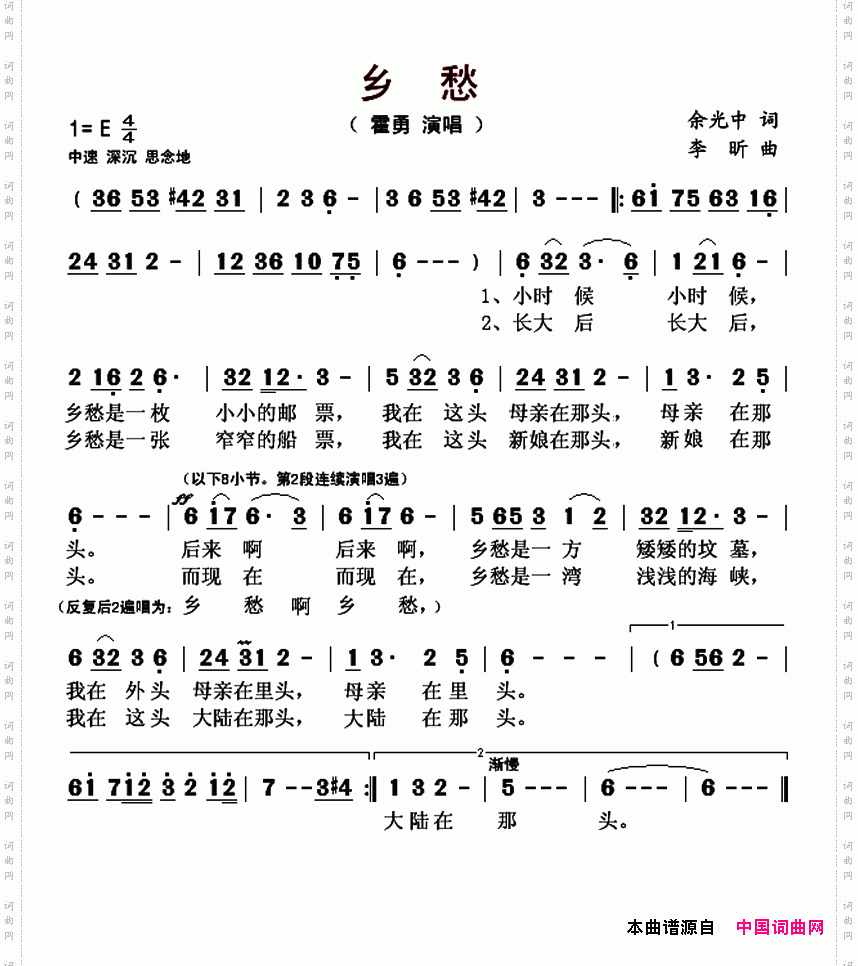 乡 愁
（ 霍勇 演唱 ）
1= E 4/4
余光中 词
中速 深沉 思念地
李 昕 曲
( 36 53 #42 31 | 2 3 6 - | 3 6 53 #42 | 3 - - - |: 61 75 63 16 |
24 31 2 - | 12 36 10 75 | 6 - - - ) | 6 32 3· 6 | 1 21 6 - |
1、小时 候 小时 候，
2、长大 后 长大 后，
2 16 2 6· | 32 12· 3 - | 5 32 3 6 | 24 31 2 - | 1 3· 2 5 |
乡愁是一枚 小小的邮 票， 我在 这头 母亲在那头， 母亲 在那
乡愁是一张 窄窄的船 票， 我在 这头 新娘在那头， 新娘 在那
（以下8小节。第2段连续演唱3遍）
ff
6 - - - | 6 17 6· 3 | 6 17 6 - | 5 65 3 1 2 | 32 12· 3 - |
头。 后来 啊 后来 啊， 乡愁是一 方 矮矮的坟 墓，
头。 而现 在 而现 在， 乡愁是一 湾 浅浅的海 峡，
（反复后2遍唱为：乡 愁 啊 乡 愁，）
1
6 32 3 6 | 24 31 2 - | 1 3· 2 5 | 6 - - - | ( 6 56 2 - |
我在 外头 母亲在里头， 母亲 在里 头。
我在 这头 大陆在那头， 大陆 在那 头。
2
渐慢
61 712 3 2 12 | 7 - - 3#4 :| 1 3 2 - | 5 - - - | 6 - - - | 6 - - - ‖
大陆在 那 头。
本曲谱源自 中国词曲网
词曲网